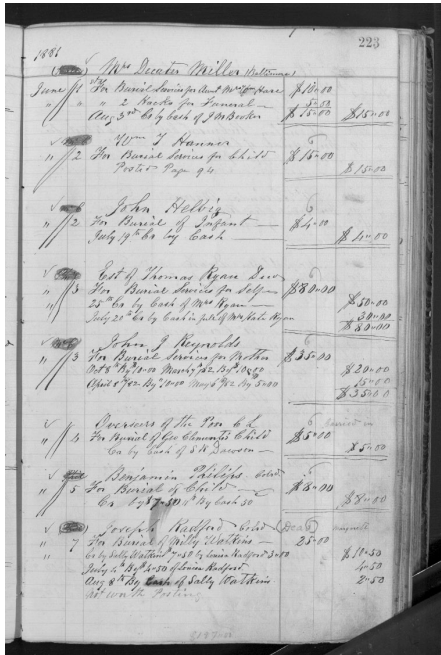 223
1881
Mrs Decatur Miller (Baltimore)
June 1st For Burial Services for Aunt Mrs Hare $10.00
" " " 2 Hacks for Funeral — 5.00
Aug 3rd Cr by Cash of J M Booker $15.00 $15.00
Wm T Hanner
" 2 For Burial Services for Child $15.00
Posted Page 94 $15.00
John Helbig
" 2 For Burial of Infant — $4.00
July 19th Cr by Cash $4.00
Est of Thomas Ryan Decd
" 3 For Burial Services for Self — $80.00
25th Cr by Cash of Mrs Ryan — $50.00
July 22nd Cr by Cash in full of Mrs Kate Ryan 30.00
$80.00
John J Reynolds
" 3 For Burial Services for Mother $35.00
Oct 8th By 10.00 March 82 By 10.00 $20.00
April 82 By 10.00 May 6th 82 By 5.00 15.00
$35.00
Overseers of the Poor C L
" 4 For Burial of Geo Clements Child $5.00
Cr by Cash of S H Dawson — $5.00
Benjamin Phillips Cold
" 5 For Burial of Child — $8.00
Cr by $7.50 By Cash 50 $8.00
Joseph Radford Cold (Dead)
" 7 For Burial of Milly Watkins — 25.00
" Cr by Sally Watkins 7.50 by Louisa Radford 3.00 $10.50
July 4th By 4.50 of Louisa Radford 4.50
Aug 8th By Cash of Sally Watkins 2.50
not worth Posting